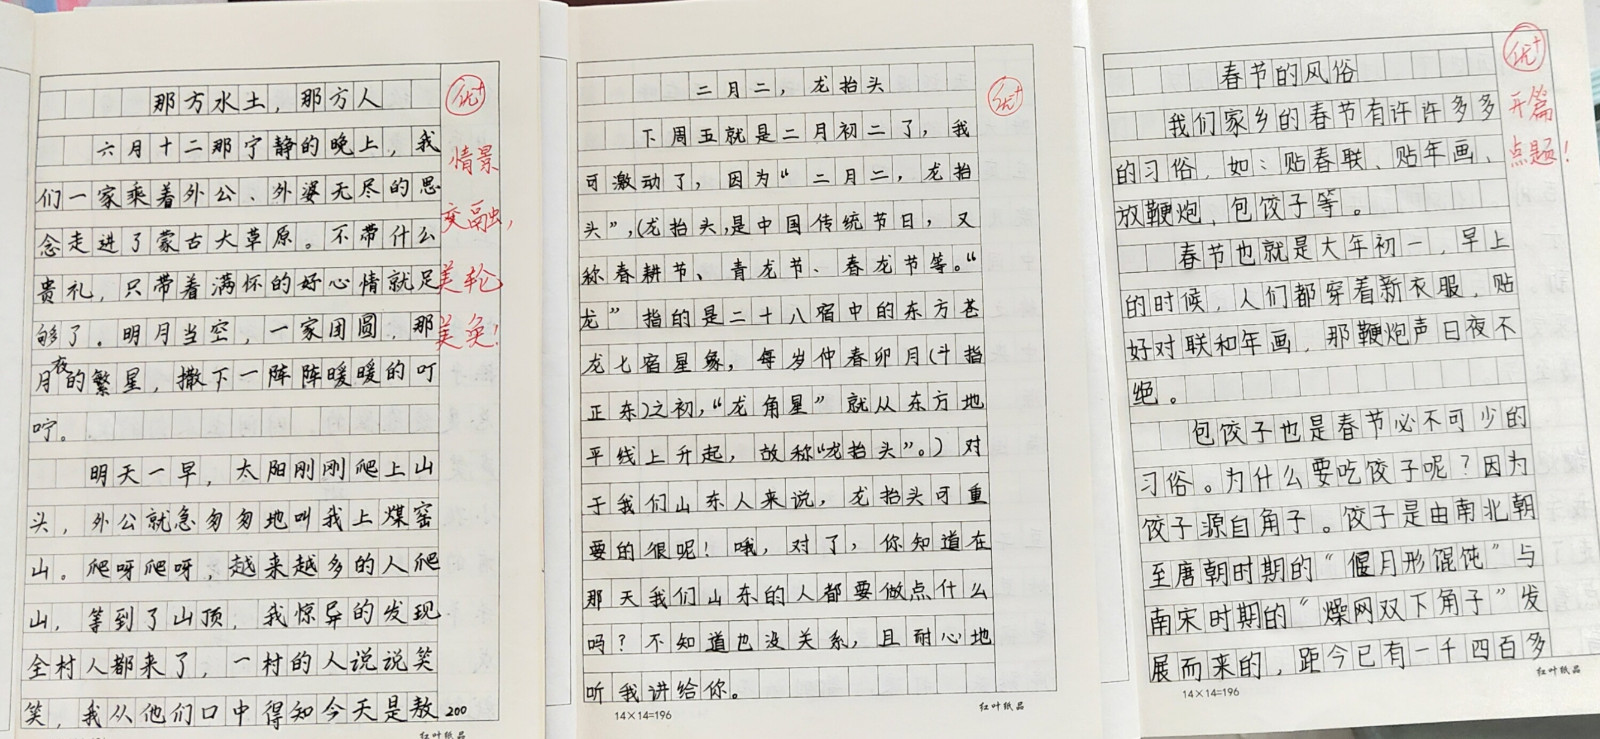 那方水土，那方人
六月十二那宁静的晚上，我
们一家乘着外公、外婆无尽的思
念走进了蒙古大草原。不带什么
贵礼，只带着满怀的好心情就足
够了。明月当空，一家团圆，那
月夜的繁星，撒下一阵阵暖暖的叮
咛。
明天一早，太阳刚刚爬上山
头，外公就急匆匆地叫我上煤窑
山。爬呀爬呀，越来越多的人爬
山，等到了山顶，我惊异的发现
全村人都来了，一村的人说说笑
笑，我从他们口中得知今天是敖
200
红叶纸品
优+
情景
交融，
美轮
美奂！
二月二，龙抬头
下周五就是二月初二了，我
可激动了，因为“二月二，龙抬
头”，（龙抬头，是中国传统节日，又
称春耕节、青龙节、春龙节等。“
龙”指的是二十八宿中的东方苍
龙七宿星象，每岁仲春卯月（斗指
正东）之初，“龙角星”就从东方地
平线上升起，故称“龙抬头”。）对
于我们山东人来说，龙抬头可重
要的很呢！哦，对了，你知道在
那天我们山东的人都要做点什么
吗？不知道也没关系，且耐心地
听我讲给你。
14×14=196
红叶纸品
优+
春节的风俗
我们家乡的春节有许许多多
的习俗，如：贴春联、贴年画、
放鞭炮，包饺子等。
春节也就是大年初一，早上
的时候，人们都穿着新衣服，贴
好对联和年画，那鞭炮声日夜不
绝。
包饺子也是春节必不可少的
习俗。为什么要吃饺子呢？因为
饺子源自角子。饺子是由南北朝
至唐朝时期的“偃月形馄饨”与
南宋时期的“燥网双下角子”发
展而来的，距今已有一千四百多
14×14=196
红叶纸品
优+
开篇
点题！